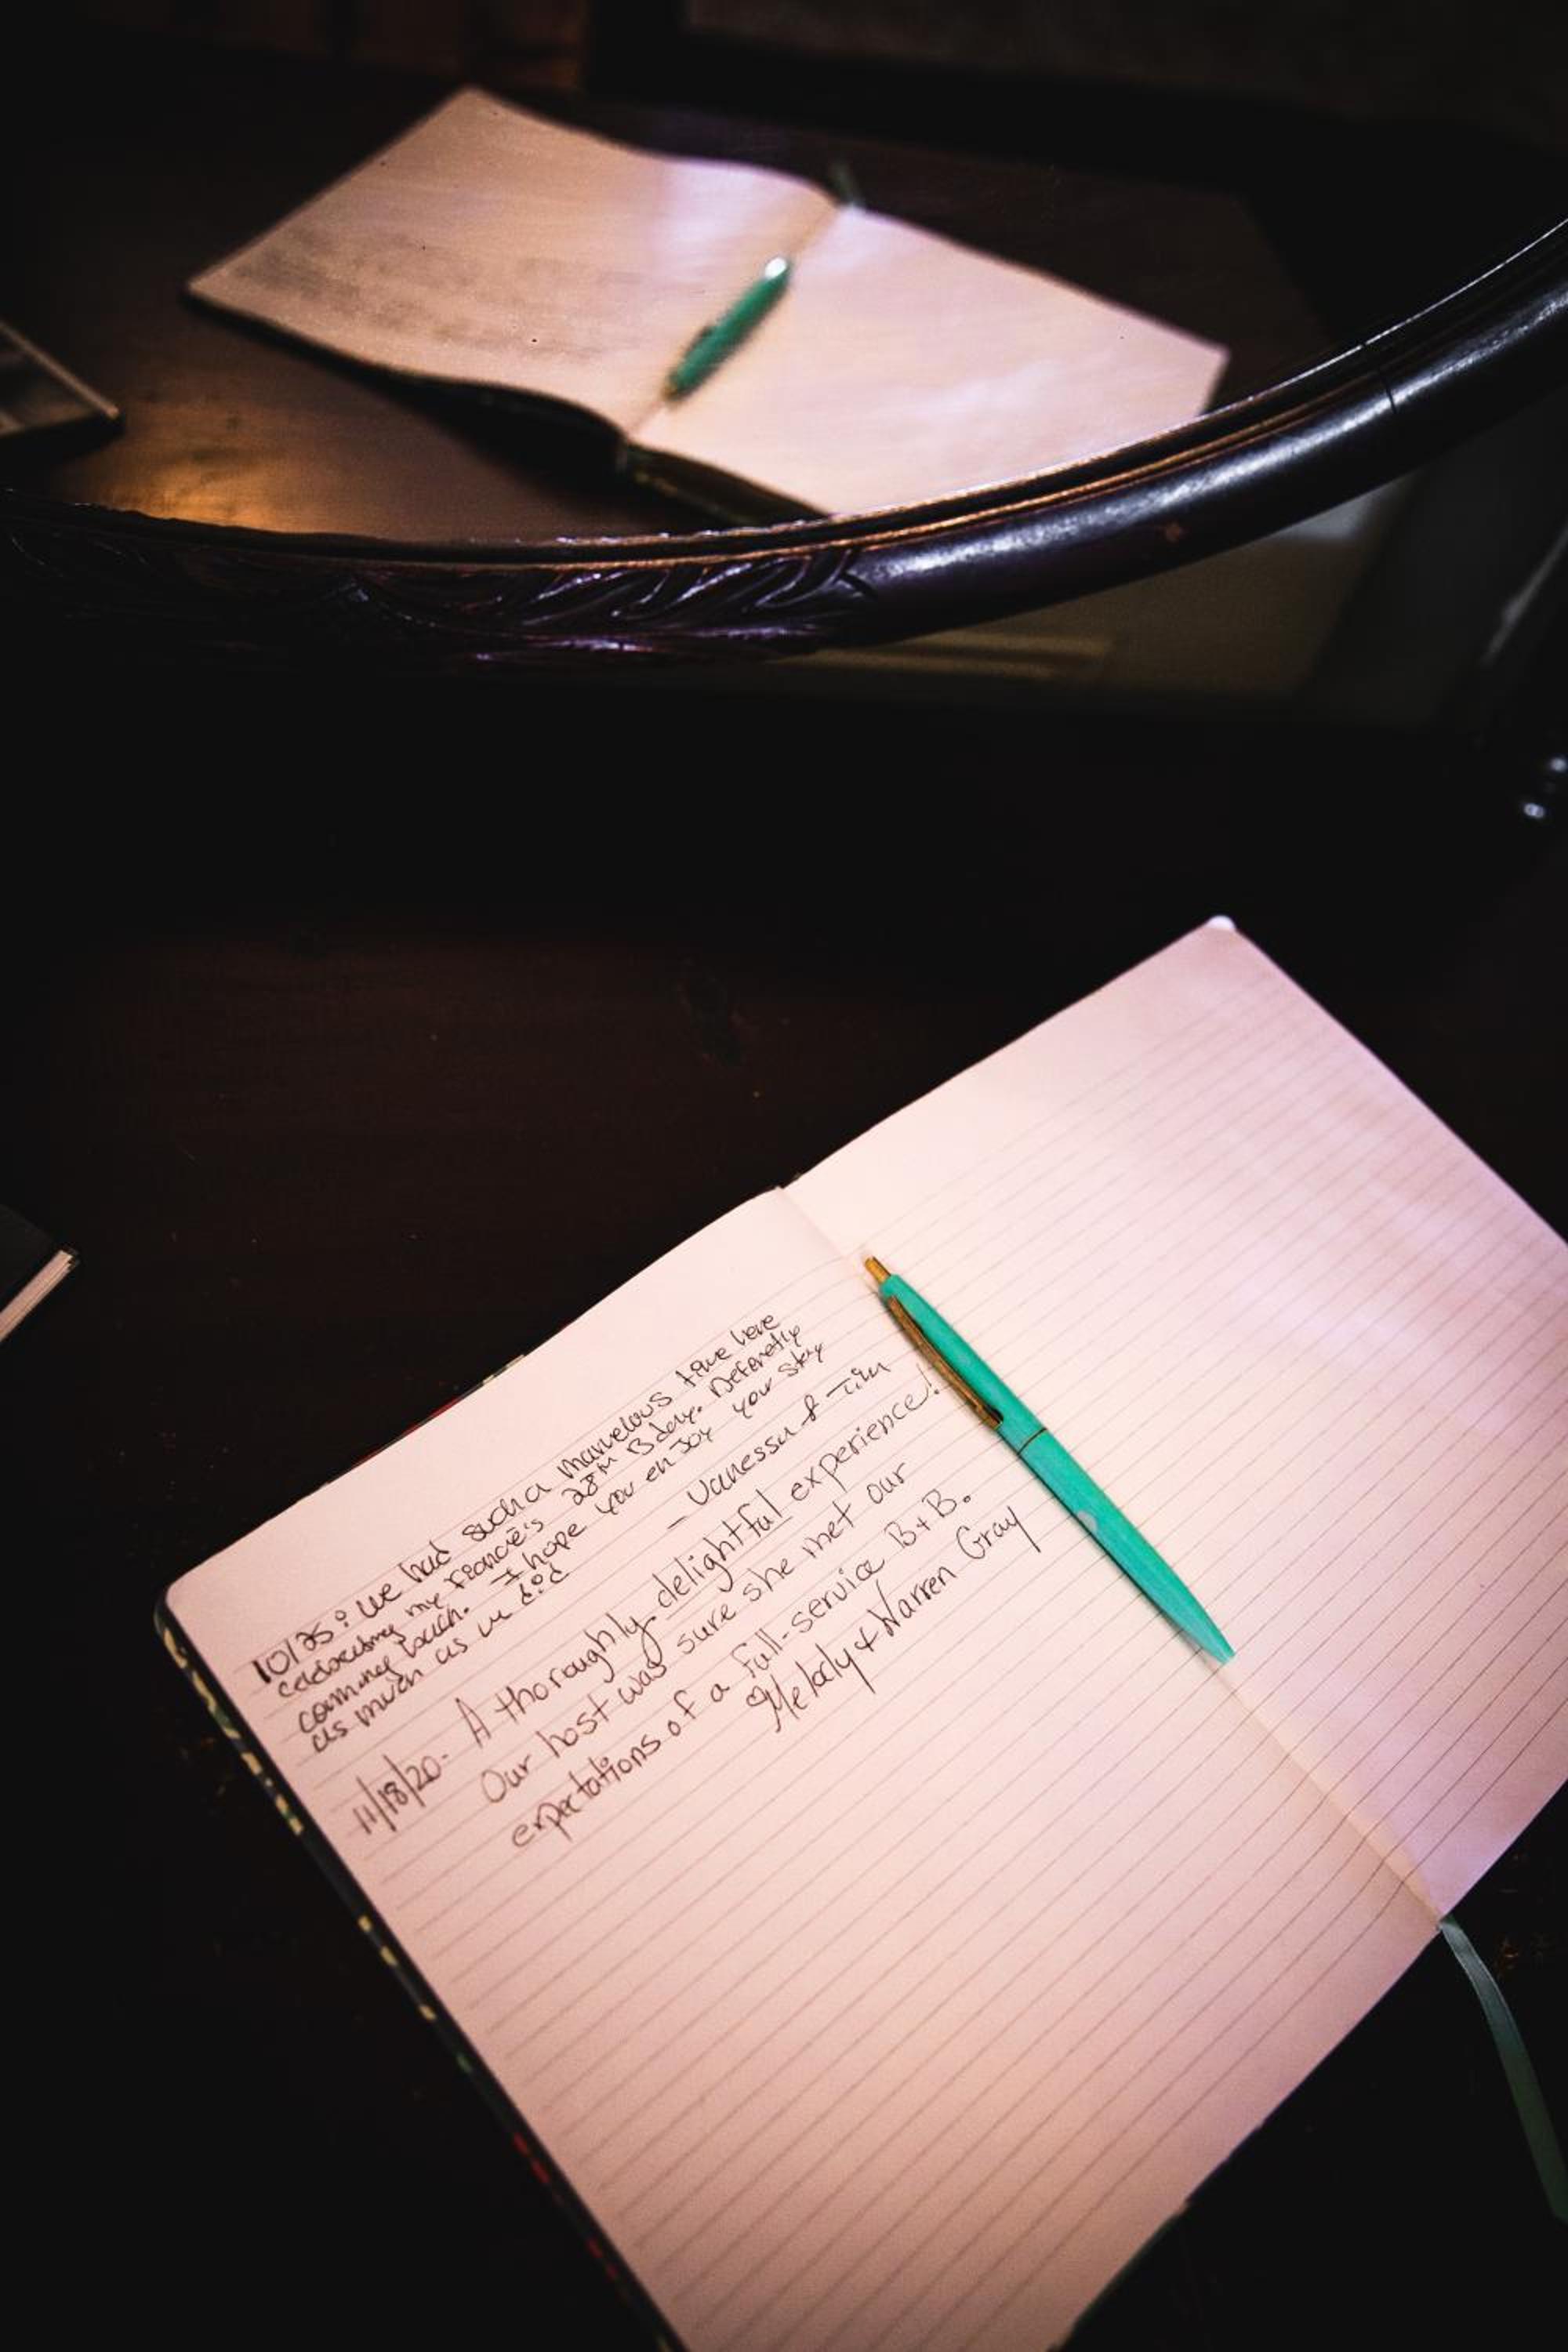 10/25: We had such a marvelous time here
celebrating my Fiancé's 28th Bday. Defenetly
coming back. I hope you enjoy your stay
as much as we did
- Vanessa & Tim
11/18/20- A thoroughly delightful experience!
Our host was sure she met our
expectations of a full-service B+B.
♡Melody + Warren Gray